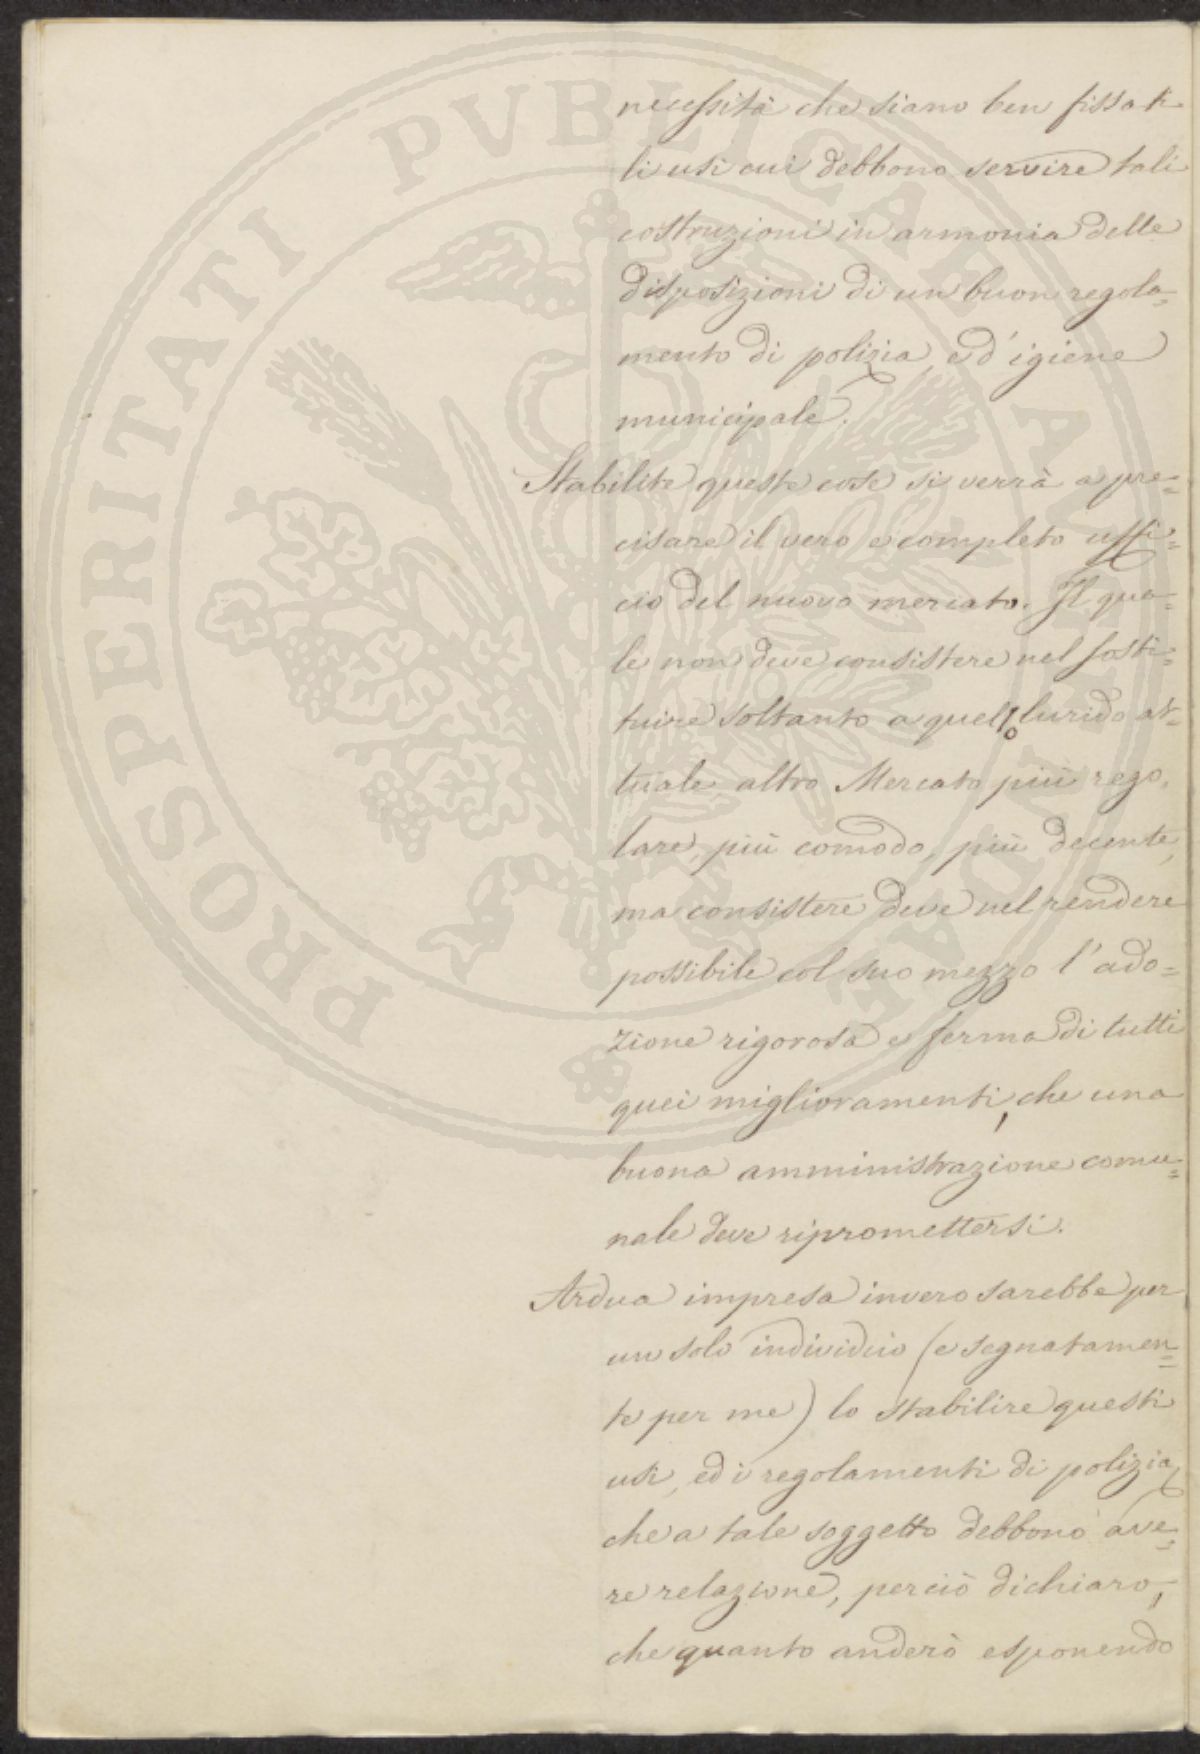 necessità che siano ben fissati
li usi cui debbono servire tali
costruzioni in armonia delle
disposizioni di un buon regola=
mento di polizia, e d'igiene
municipale.
Stabilite queste cose si verrà a pre=
cisare il vero e completo uffi=
cio del nuovo mercato. Il qua=
le non deve consistere nel sosti=
tuire soltanto a quello lurido at=
tuale altro Mercato più rego,
lare, più comodo, più decente,
ma consistere deve nel rendere
possibile col suo mezzo l'ado=
zione rigorosa e ferma di tutti
quei miglioramenti, che una
buona amministrazione comu=
nale deve ripromettersi.
Ardua impresa invero sarebbe per
un solo individuo (e segnatamen=
te per me) lo stabilire questi
usi, ed i regolamenti di polizia,
che a tale soggetto debbono ave=
re relazione, perciò dichiaro,
che quanto anderò esponendo
PROSPERITATI PVBLICAE AVGENDAE